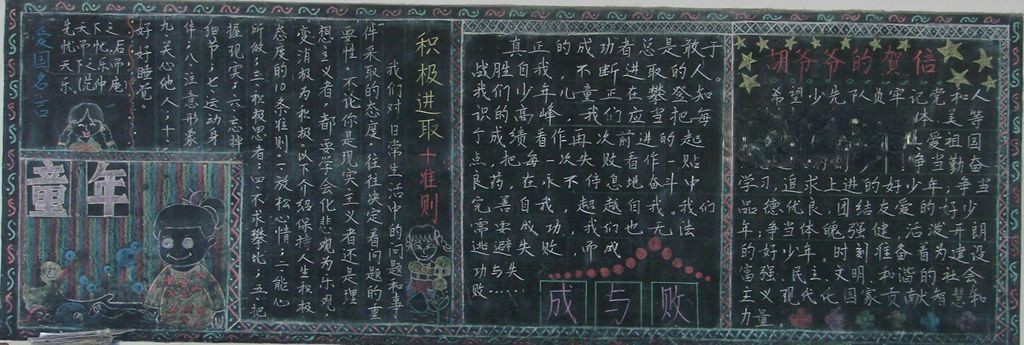 爱国名言
先天下之
忧而忧,后
天下之乐而
乐 范仲淹
童年
积极进取十准则
我们对日常生活中的问题和事
件采取的态度,往往决定着问题的重
要性。不论你是现实主义者还是理
想主义者,都要学会化悲观为乐观
变消极为积极。以下介绍保持人生积极
态度的10条准则:一、放松心情;二、能心
所做;三、积极思考;四、不求攀比;五、把
握现实;六、忘掉
细节;七、运动身
体;八、注意形象;
九、关心他人;十、
好好睡觉。
真正的成功者总是敢于
战胜自我,不断进取的人。
我们少年儿童正在攀登知
识的高峰,我们应当把每
个成绩看作再次前进的起
点,把每一次失败看作一贴
良药,在永不停息地奋斗中
完善自我,超越自我。我们
功与失
败……
成与败
胡爷爷的贺信
希望少先队员牢记党和人
体、美等
爱祖国
争当勤奋
学习,追求上进的好少年;争当
品德优良,团结友爱的好少
年;争当体魄强健,活泼开朗
的好少年,时刻准备着为建设
富强、民主、文明、和谐的社会
主义现代化国家贡献智慧和
力量。